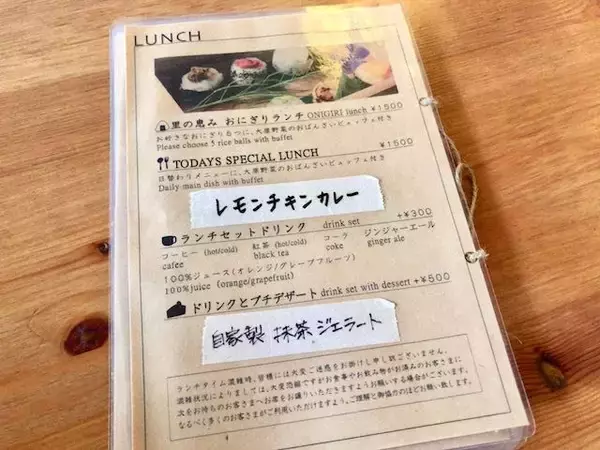 LUNCH
里の恵み おにぎりランチ ONIGIRI lunch ¥1500
お好きなおにぎり3つに、大原野菜のおばんざいビュッフェ付き
Please choose 3 rice balls with buffet
TODAYS SPECIAL LUNCH ¥1500
日替わりメニューに、大原野菜のおばんざいビュッフェ付き
Daily main dish with buffet
レモンチキンカレー
ランチセットドリンク drink set +¥300
コーヒー (hot/cold) 紅茶 (hot/cold) コーラ ジンジャーエール
cafee black tea coke ginger ale
100%ジュース(オレンジ/グレープフルーツ)
100%juice (orange/grapefruit)
ドリンクとプチデザート drink set with dessert +¥500
自家製 抹茶ジェラート
ランチタイム混雑時、皆様には大変ご迷惑をお掛けし申し訳ございません。
混雑状況によりましては、大変恐縮ですがお食事やお飲み物がお済みのお客さまに
次をお待ちのお客さまへお席をお譲りいただきますようお願いする場合がございます。
なるべく多くのお客さまがご利用いただけますよう。ご理解と御協力のほどお願い致します。